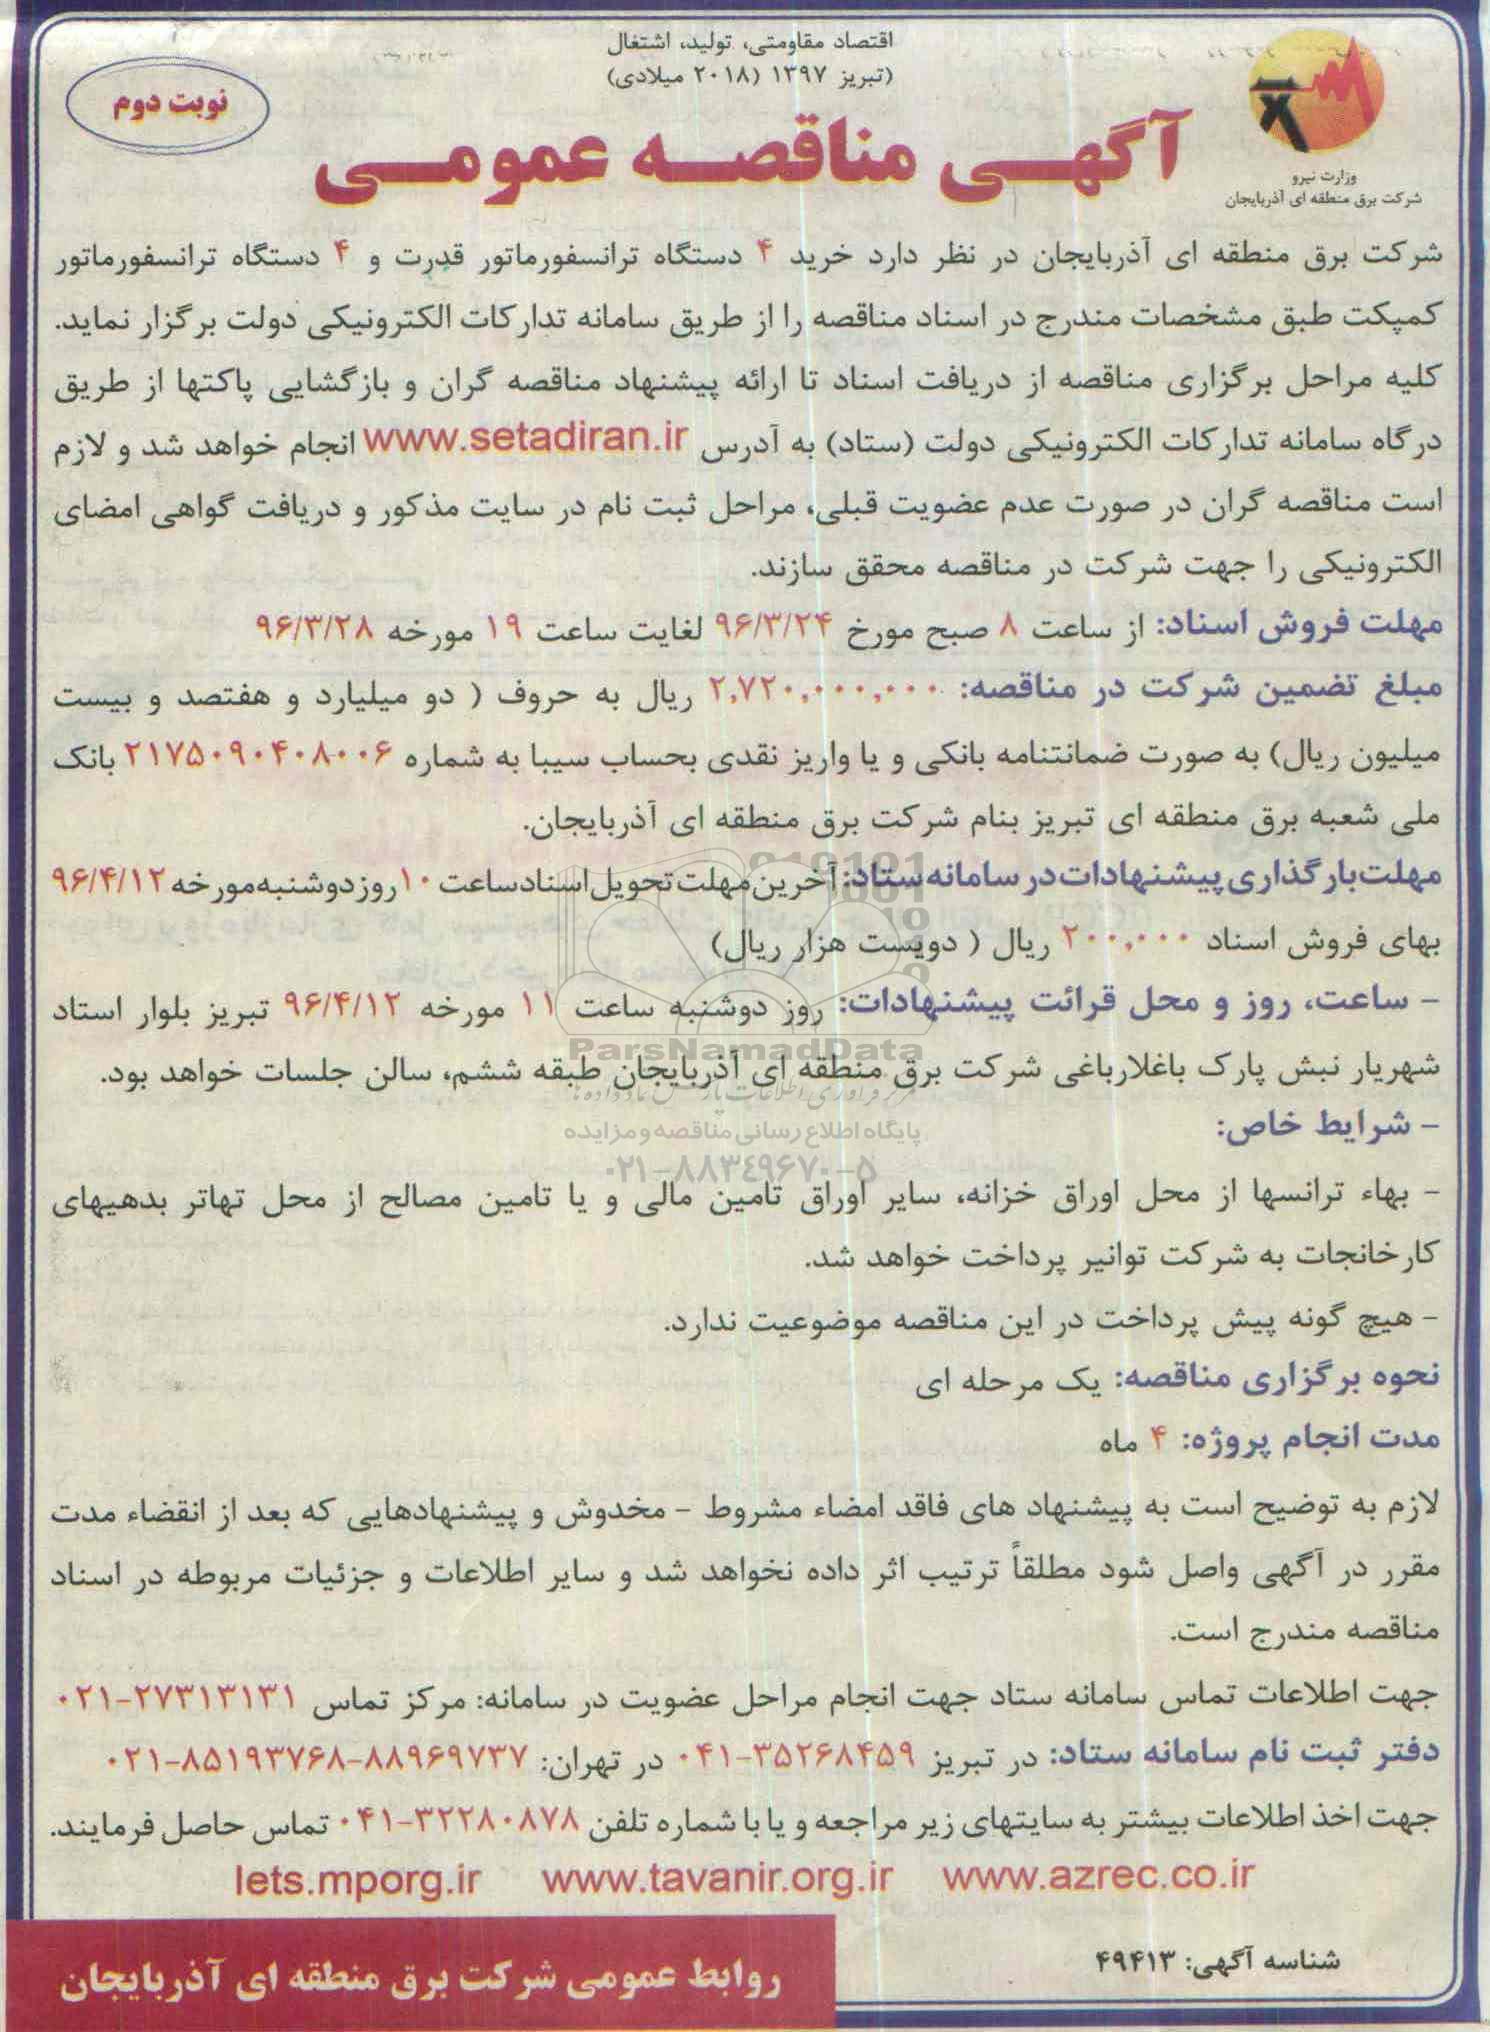 اقتصاد مقاومتی، تولید، اشتغال
(تبریز ۱۳۹۷ (۲۰۱۸ میلادی)
نوبت دوم
آگهی مناقصه عمومی
وزارت نیرو
شرکت برق منطقه ای آذربایجان
شرکت برق منطقه ای آذربایجان در نظر دارد خرید ۴ دستگاه ترانسفورماتور قدرت و ۴ دستگاه ترانسفورماتور
کمپکت طبق مشخصات مندرج در اسناد مناقصه را از طریق سامانه تدارکات الکترونیکی دولت برگزار نماید.
کلیه مراحل برگزاری مناقصه از دریافت اسناد تا ارائه پیشنهاد مناقصه گران و بازگشایی پاکتها از طریق
درگاه سامانه تدارکات الکترونیکی دولت (ستاد) به آدرس www.setadiran.ir انجام خواهد شد و لازم
است مناقصه گران در صورت عدم عضویت قبلی، مراحل ثبت نام در سایت مذکور و دریافت گواهی امضای
الکترونیکی را جهت شرکت در مناقصه محقق سازند.
مهلت فروش اسناد: از ساعت ۸ صبح مورخ ۹۶/۳/۲۴ لغایت ساعت ۱۹ مورخه ۹۶/۳/۲۸
مبلغ تضمین شرکت در مناقصه: ۲,۷۲۰,۰۰۰,۰۰۰ ریال به حروف ( دو میلیارد و هفتصد و بیست
میلیون ریال) به صورت ضمانتنامه بانکی و یا واریز نقدی بحساب سیبا به شماره ۲۱۷۵۰۹۰۴۰۸۰۰۶ بانک
ملی شعبه برق منطقه ای تبریز بنام شرکت برق منطقه ای آذربایجان.
مهلت بارگذاری پیشنهادات در سامانه ستاد: آخرین مهلت تحویل اسناد ساعت ۱۰ روز دوشنبه مورخه ۹۶/۴/۱۲
بهای فروش اسناد ۲۰۰,۰۰۰ ریال ( دویست هزار ریال)
- ساعت، روز و محل قرائت پیشنهادات: روز دوشنبه ساعت ۱۱ مورخه ۹۶/۴/۱۲ تبریز بلوار استاد
ParsNamadData
شهریار نبش پارک باغلارباغی شرکت برق منطقه ای آذربایجان طبقه ششم، سالن جلسات خواهد بود.
- شرایط خاص:
پایگاه اطلاع رسانی مناقصه و مزایده
۰۲۱-۸۸۳۴۹۶۷۰-۵
- بهاء ترانسها از محل اوراق خزانه، سایر اوراق تامین مالی و یا تامین مصالح از محل تهاتر بدهیهای
کارخانجات به شرکت توانیر پرداخت خواهد شد.
- هیچ گونه پیش پرداخت در این مناقصه موضوعیت ندارد.
نحوه برگزاری مناقصه: یک مرحله ای
مدت انجام پروژه: ۴ ماه
لازم به توضیح است به پیشنهاد های فاقد امضاء مشروط - مخدوش و پیشنهادهایی که بعد از انقضاء مدت
مقرر در آگهی واصل شود مطلقاً ترتیب اثر داده نخواهد شد و سایر اطلاعات و جزئیات مربوطه در اسناد
مناقصه مندرج است.
جهت اطلاعات تماس سامانه ستاد جهت انجام مراحل عضویت در سامانه: مرکز تماس ۰۲۱-۲۷۳۱۳۱۳۱
دفتر ثبت نام سامانه ستاد: در تبریز ۰۴۱-۳۵۲۶۸۴۵۹ در تهران: ۰۲۱-۸۵۱۹۳۷۶۸-۸۸۹۶۹۷۳۷
جهت اخذ اطلاعات بیشتر به سایتهای زیر مراجعه و یا با شماره تلفن ۰۴۱-۳۲۲۸۰۸۷۸ تماس حاصل فرمایند.
iets.mporg.ir www.tavanir.org.ir www.azrec.co.ir
شناسه آگهی: ۴۹۴۱۳
روابط عمومی شرکت برق منطقه ای آذربایجان